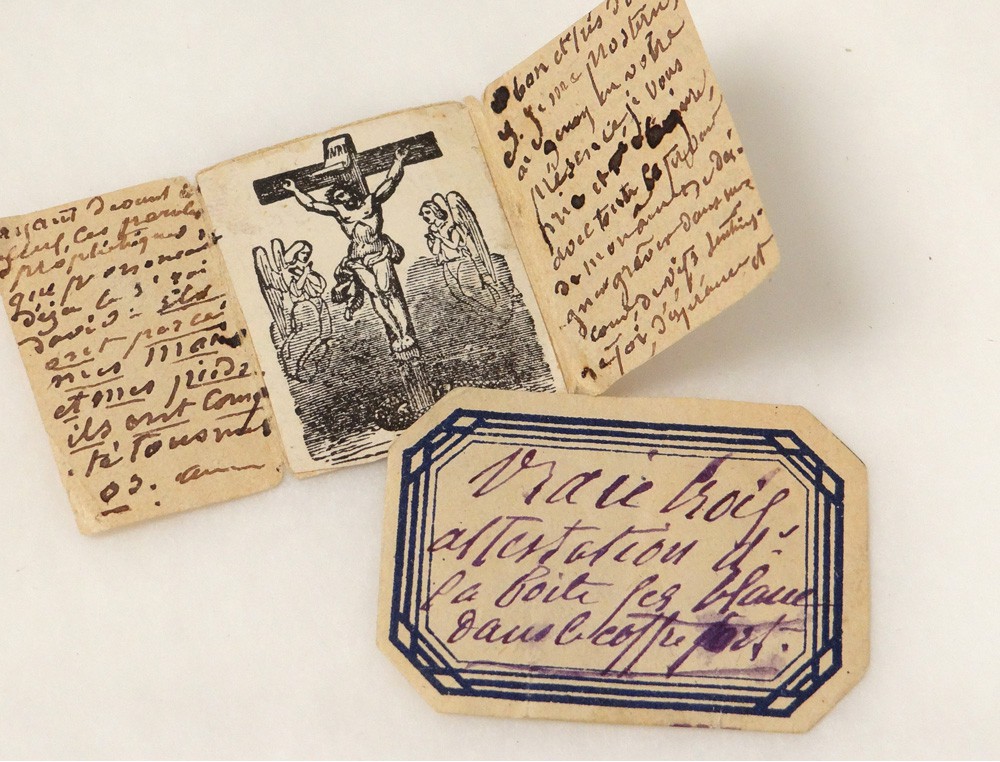 ayant devant les
yeux, ces paroles
prophétiques
que prononçait
déjà le S. roi
david: ils
ont percé
mes mains
et mes pieds.
ils ont comp
té tous mes
os. amen
INRI
O bon et très
J. je me prosterne
à genoux en votre
présence je vous
prie et
avec toute la
de mon âme de dai-
gner graver dans mon
cœur de vifs
de foi, d'espérance et
Vraie Croix
attestation ds
la boite fer blanc
dans le coffre fort.